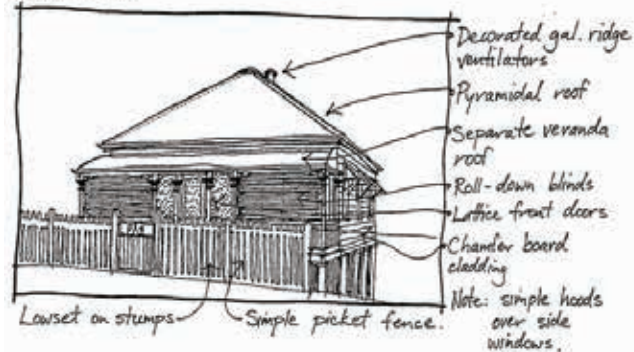 Decorated gal. ridge
ventilators
Pyramidal roof
Separate veranda
roof
Roll-down blinds
Lattice front doors
Chamfer board
cladding
Note: simple hoods
over side
windows.
Lowset on stumps
Simple picket fence.